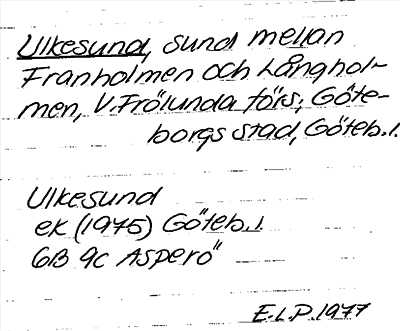 Ulkesund, sund mellan
Franholmen och Långhol-
men, V. Frölunda förs; Göte-
borgs stad, Göteb. l.
Ulkesund
ek (1975) Göteb. l.
6B 9c Asperö
E.L.P. 1977